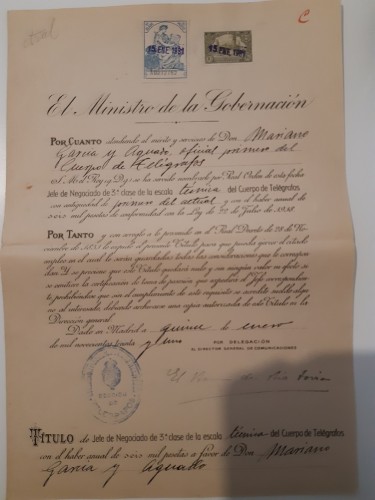 C
15 ENE 1931
15 ENE 1931
El Ministro de la Gobernación
POR CUANTO atendiendo al mérito y servicios de Don Mariano
Gracia y Aguado, oficial primero del
Cuerpo de Telégrafos
S. M. el Rey (q. D. g.) se ha servido nombrarle por Real Orden de esta fecha
Jefe de Negociado de 3ª clase de la escala técnica del Cuerpo de Telégrafos
con antigüedad de primero del actual y con el haber anual de
seis mil pesetas de conformidad con la Ley de 22 de Julio de 1918.
POR TANTO y con arreglo a lo prevenido en el Real Decreto de 28 de No-
viembre de 1851 le expido el presente Título para que pueda ejercer el citado
empleo en el cual le serán guardadas todas las consideraciones que le correspon-
dan. Y se previene que este Título quedará nulo y sin ningún valor ni efecto si
se omitiese la certificación de toma de posesión que expedirá el Jefe correspondien-
te prohibiéndose que sin el cumplimiento de este requisito se acredite sueldo algu-
no al interesado debiendo archivarse una copia autorizada de este Título en la
Dirección general.
Dado en Madrid a quince de enero
de mil novecientos treinta y uno
POR DELEGACIÓN
EL DIRECTOR GENERAL DE COMUNICACIONES
El
TÍTULO de Jefe de Negociado de 3ª clase de la escala técnica del Cuerpo de Telégrafos
con el haber anual de seis mil pesetas a favor de Don Mariano
Gracia y Aguado